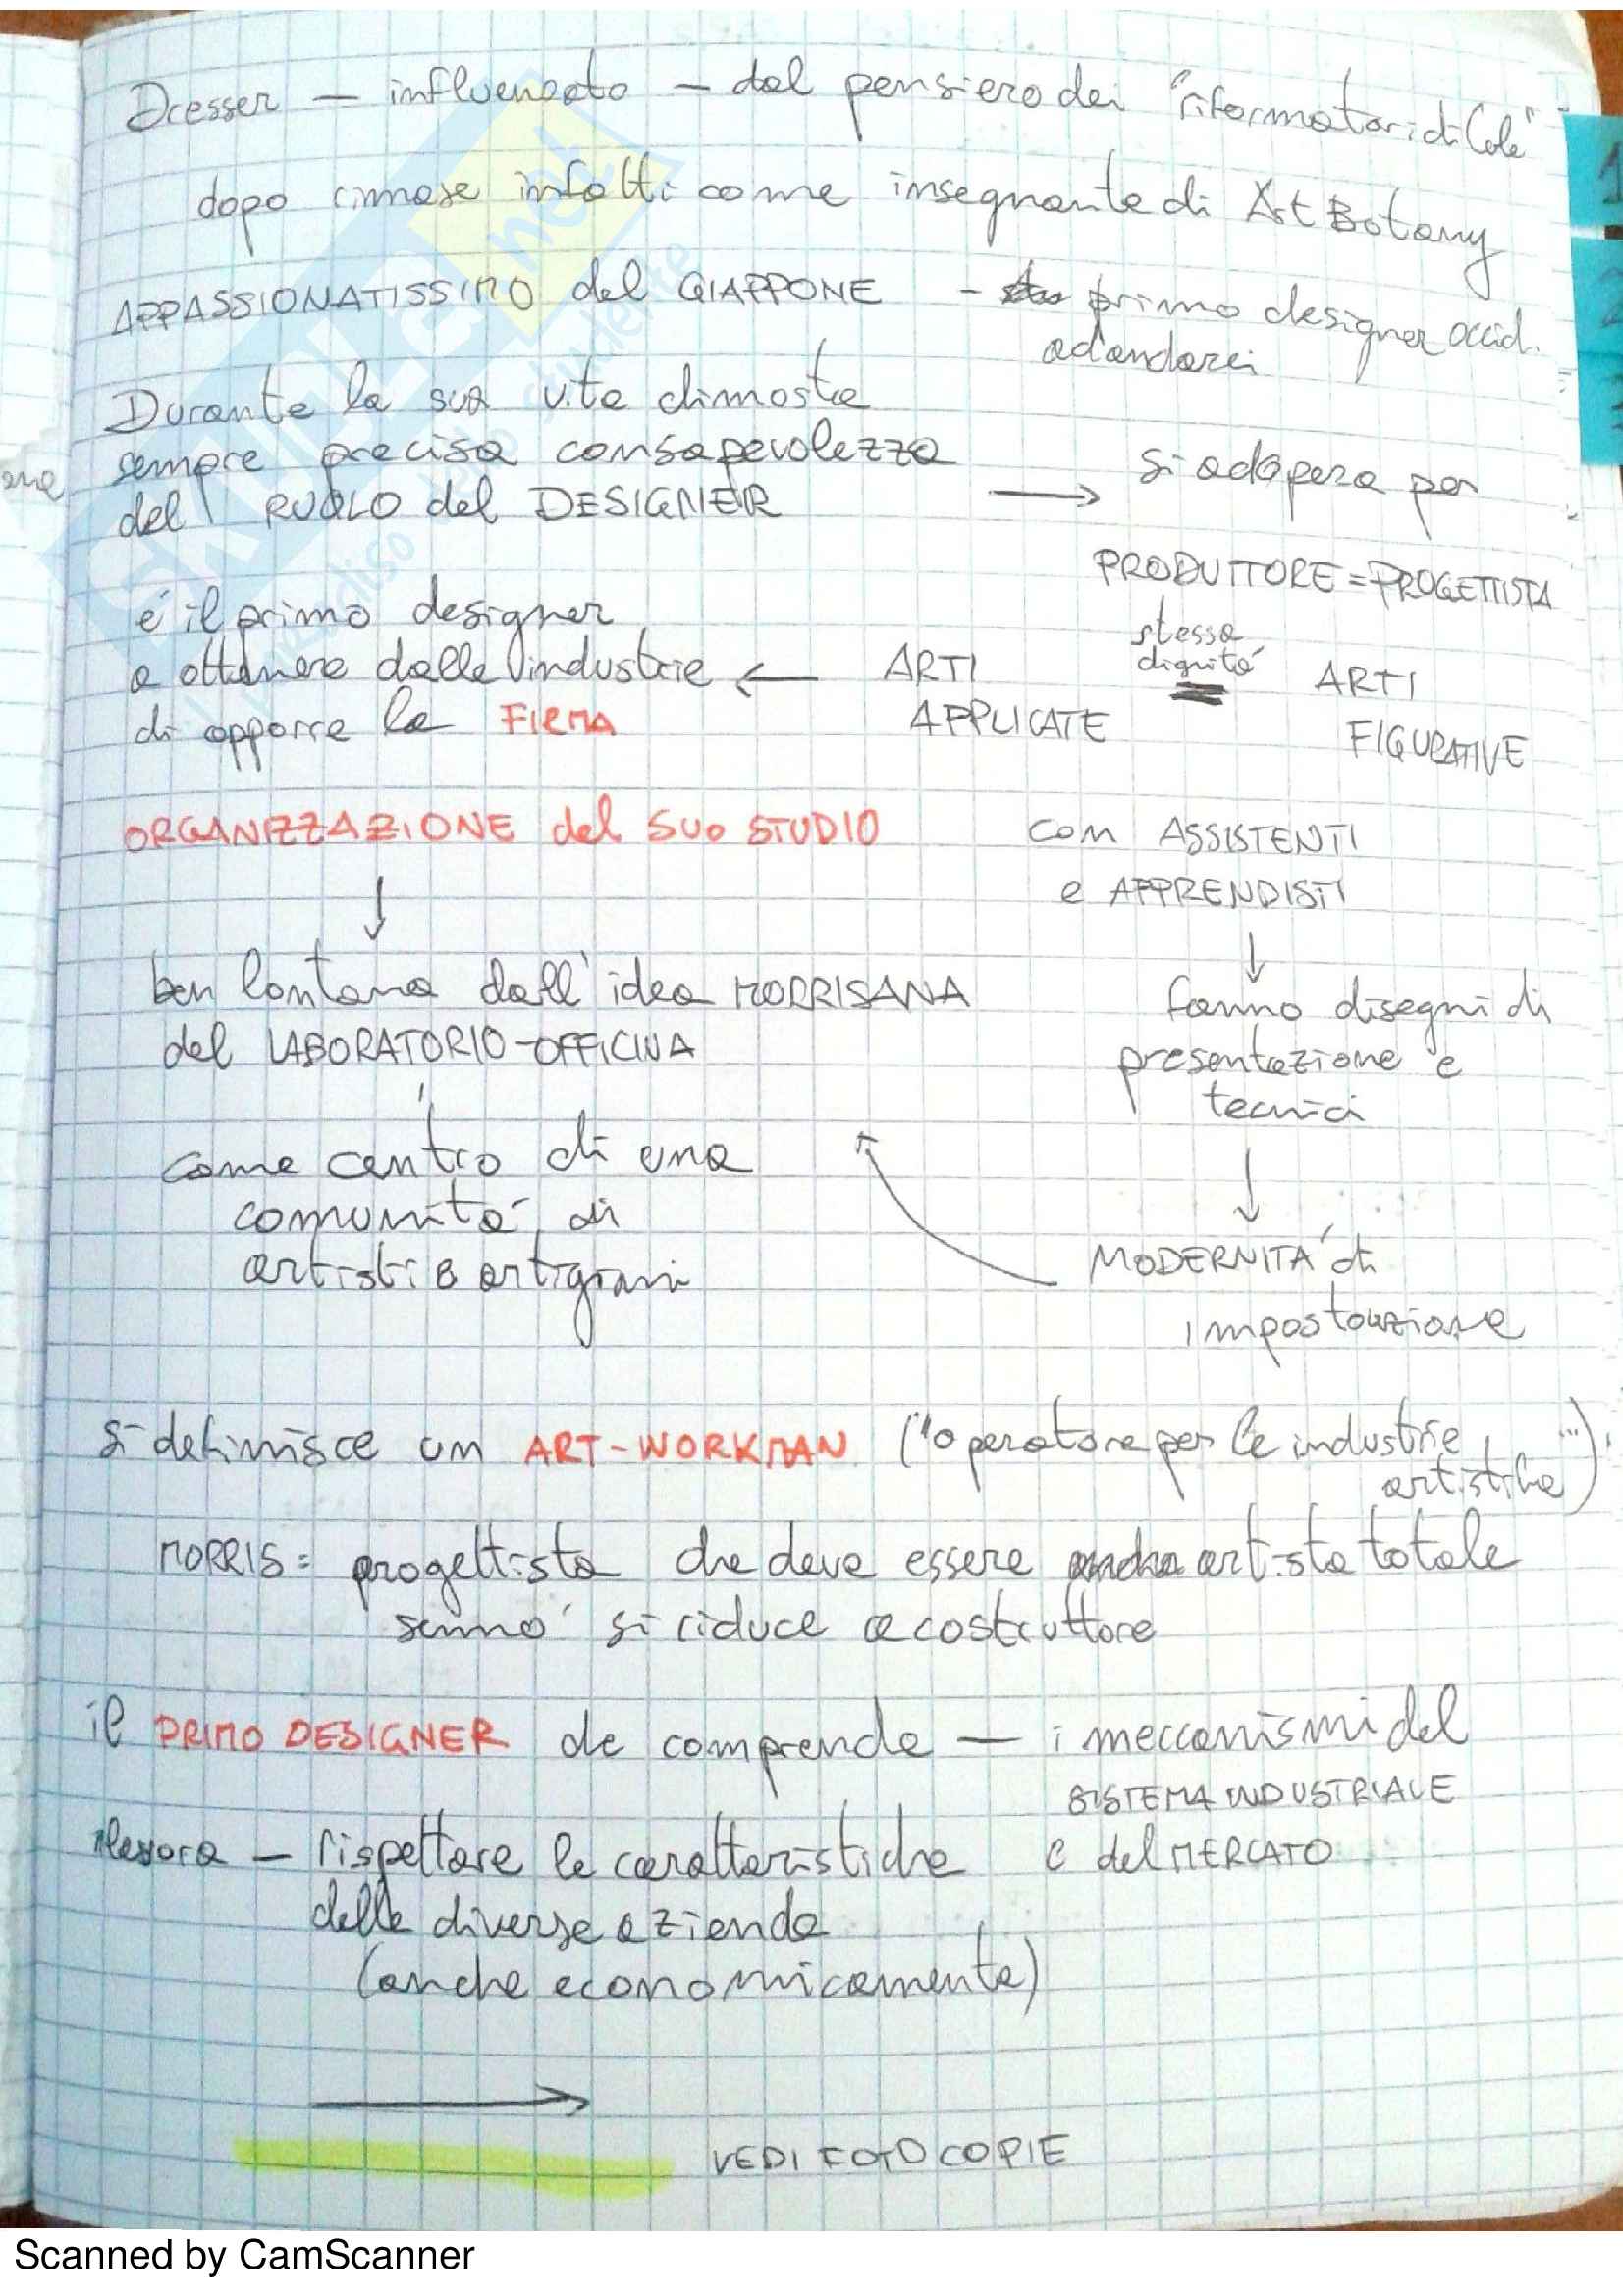 Dresser — influenzato — dal pensiero dei "riformatori di Cole"
dopo rimase infatti come insegnante di Art Botany
APPASSIONATISSIMO del GIAPPONE - primo designer occid.
ad andarci
Durante la sua vita dimostra
sempre precisa consapevolezza
del RUOLO del DESIGNER → si adopera per
PRODUTTORE = PROGETTISTA
è il primo designer
a ottenere dalle industrie ← ARTI stessa dignità ARTI
di apporre la FIRMA APPLICATE FIGURATIVE
ORGANIZZAZIONE del SUO STUDIO con ASSISTENTI
e APPRENDISTI
↓ ↓
ben lontana dall'idea MORRISANA fanno disegni di
del LABORATORIO-OFFICINA presentazione e
tecnici
come centro di una ↓
comunità di MODERNITA' di
artisti e artigiani impostazione
si definisce un ART-WORKMAN ("operatore per le industrie
artistiche")
MORRIS = progettista che deve essere anche artista totale
sennò si riduce a costruttore
il PRIMO DESIGNER che comprende — i meccanismi del
SISTEMA INDUSTRIALE
— rispettare le caratteristiche e del MERCATO
delle diverse aziende
(anche economicamente)
→
VEDI FOTOCOPIE
SKUOLA.net
Scanned by CamScanner